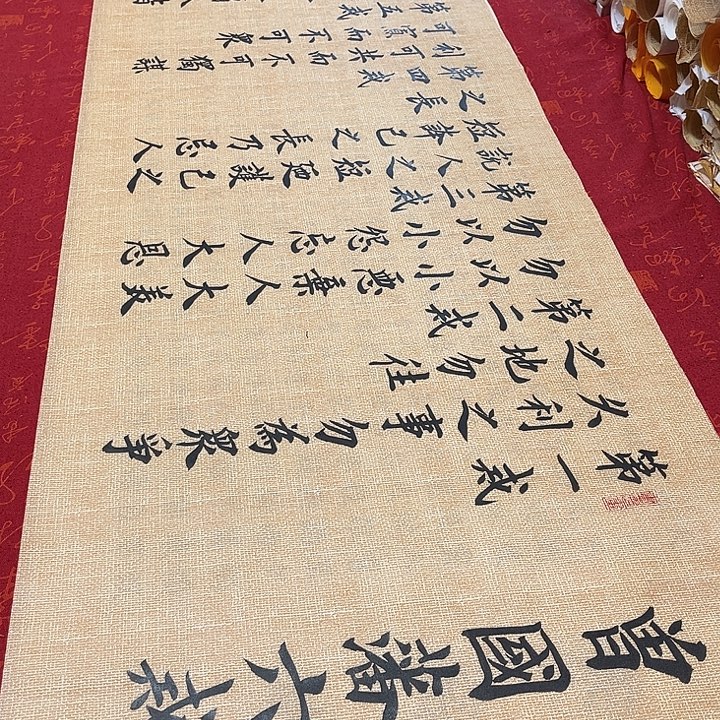 曾國藩六戒
第一戒
久利之事勿為眾爭
之地勿往
第二戒
勿以小惡棄人大美
勿以小怨忘人大恩
第三戒
說人之短廼護己之
短夸己之長乃忌人
之長
第四戒
利可共而不可獨謀
可寡而不可衆
第五戒